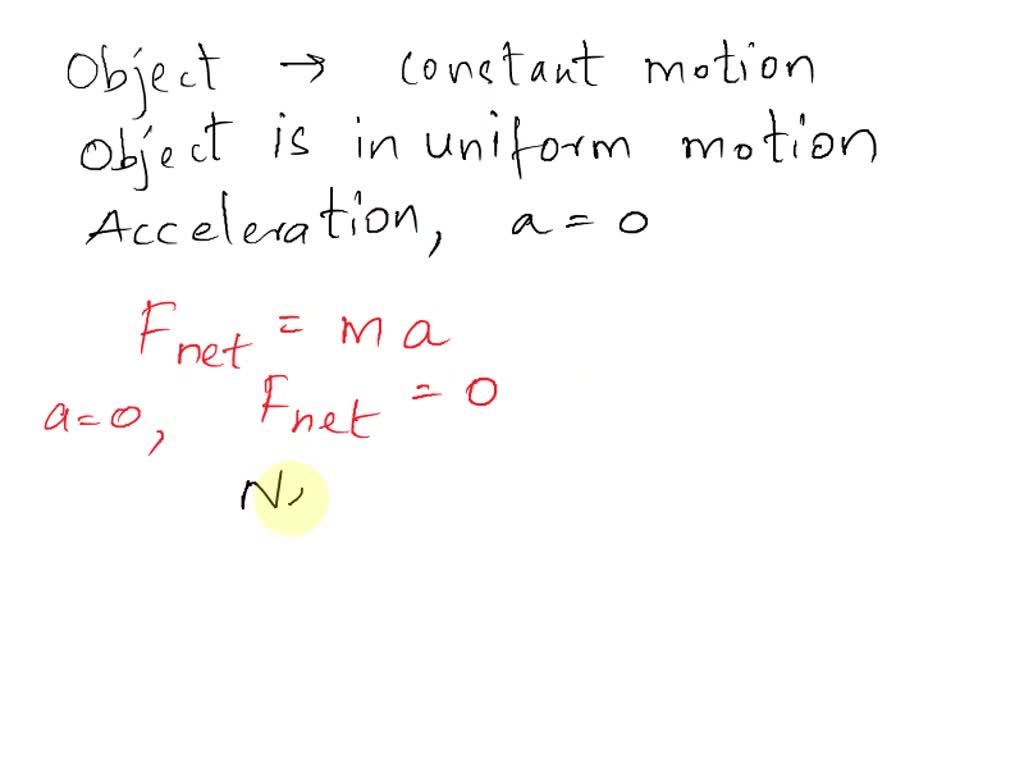 Object → constant motion
Object is in uniform motion
Acceleration, a = 0
Fnet = ma
a=0, Fnet = 0
N